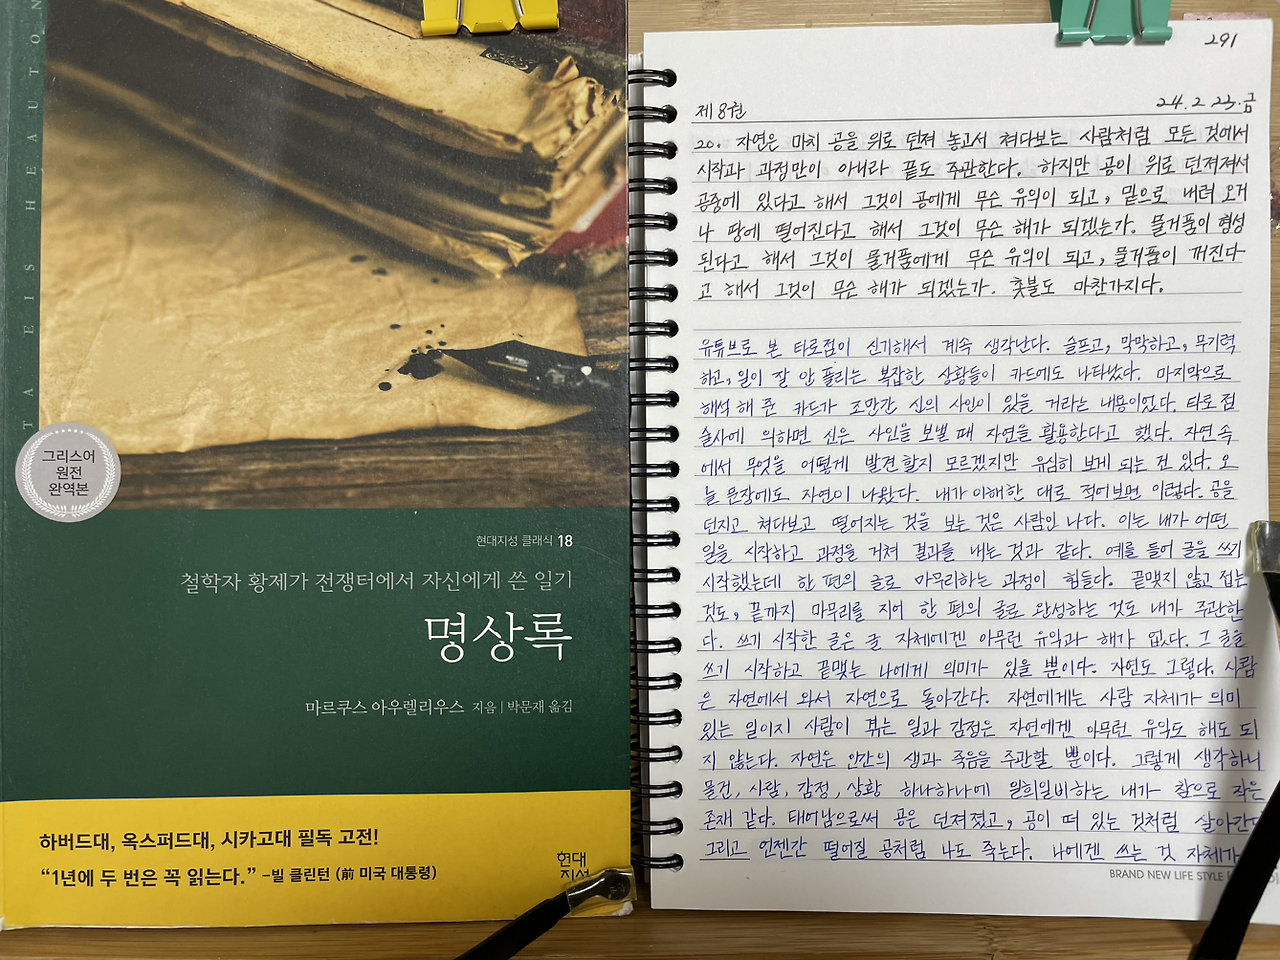 TA EIS HEAUTON
그리스어
원전
완역본
현대지성 클래식 18
철학자 황제가 전쟁터에서 자신에게 쓴 일기
명상록
마르쿠스 아우렐리우스 지음 | 박문재 옮김
하버드대, 옥스퍼드대, 시카고대 필독 고전!
“1년에 두 번은 꼭 읽는다.” –빌 클린턴 (前 미국 대통령)
현대
지성
291
제 8권 24. 2. 23. 금
20. 자연은 마치 공을 위로 던져 놓고서 쳐다보는 사람처럼 모든 것에서
시작과 과정만이 아니라 끝도 주관한다. 하지만 공이 위로 던져져서
공중에 있다고 해서 그것이 공에게 무슨 유익이 되고, 밑으로 내려 오거
나 땅에 떨어진다고 해서 그것이 무슨 해가 되겠는가. 물거품이 형성
된다고 해서 그것이 물거품에게 무슨 유익이 되고, 물거품이 꺼진다
고 해서 그것이 무슨 해가 되겠는가. 촛불도 마찬가지다.
유튜브로 본 타로점이 신기해서 계속 생각난다. 슬프고, 막막하고, 무기력
하고, 일이 잘 안 풀리는 복잡한 상황들이 카드에도 나타났다. 마지막으로
해석 해 준 카드가 조만간 신의 사인이 있을 거라는 내용이었다. 타로 점
술사에 의하면 신은 사인을 보낼 때 자연을 활용한다고 했다. 자연 속
에서 무엇을 어떻게 발견할지 모르겠지만 유심히 보게 되는 건 있다. 오
늘 문장에도 자연이 나왔다. 내가 이해한 대로 적어보면 이렇다. 공을
던지고 쳐다보고 떨어지는 것을 보는 것은 사람인 나다. 이는 내가 어떤
일을 시작하고 과정을 거쳐 결과를 내는 것과 같다. 예를 들어 글을 쓰기
시작했는데 한 편의 글로 마무리하는 과정이 힘들다. 끝맺지 않고 접는
것도, 끝까지 마무리를 지어 한 편의 글로 완성하는 것도 내가 주관한
다. 쓰기 시작한 글은 글 자체에겐 아무런 유익과 해가 없다. 그 글을
쓰기 시작하고 끝맺는 나에게 의미가 있을 뿐이다. 자연도 그렇다. 사람
은 자연에서 와서 자연으로 돌아간다. 자연에게는 사람 자체가 의미
있는 일이지 사람이 겪는 일과 감정은 자연에겐 아무런 유익도 해도 되
지 않는다. 자연은 인간의 생과 죽음을 주관할 뿐이다. 그렇게 생각하니
물건, 사람, 감정, 상황 하나하나에 일희일비하는 내가 참으로 작은
존재 같다. 태어남으로써 공은 던져졌고, 공이 떠 있는 것처럼 살아간다
그리고 언젠간 떨어질 공처럼 나도 죽는다. 나에겐 쓰는 것 자체가
BRAND NEW LIFE STYLE